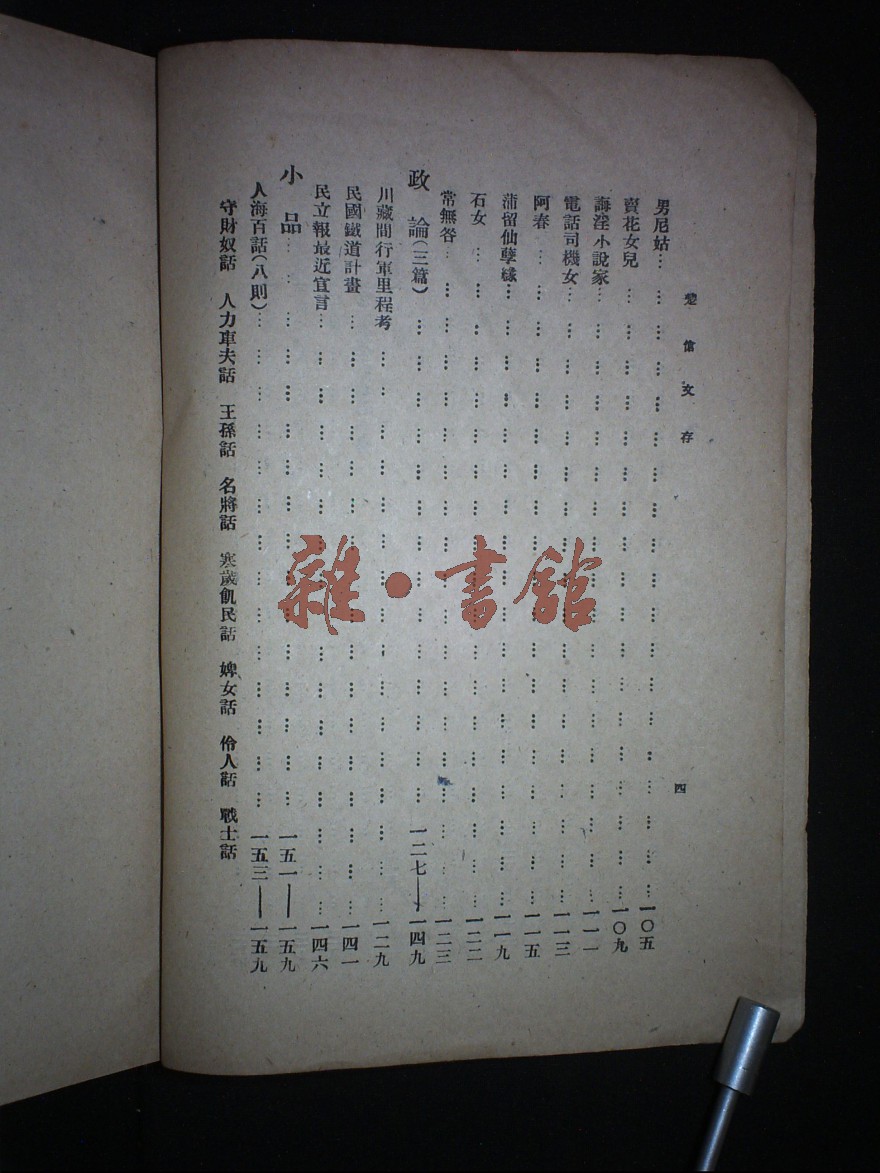 楚傖文存
四
男尼姑……一〇五
賣花女兒……一〇九
誨淫小說家……一一一
電話司機女……一一三
阿春……一一五
蒲留仙孽讖……一一九
石女……一二二
常無咎……一二三
政論(三篇)……一二七——一四九
川藏間行軍里程考……一二九
民國鐵道計畫……一四一
民立報最近宣言……一四六
小品……一五一——一五九
人海百話(八則)……一五三——一五九
守財奴話 人力車夫話 王孫話 名將話 寒歲飢民話 婢女話 伶人話 戰士話
雜·書館